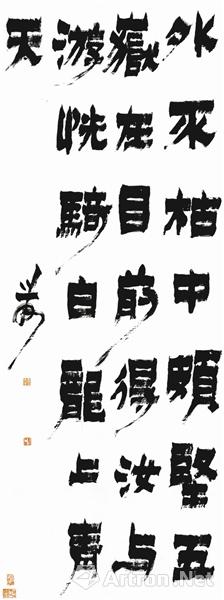 外不枯中頗堅五
嶽在目前得汝与
游恍騎白龍上青
天
Artron.Net